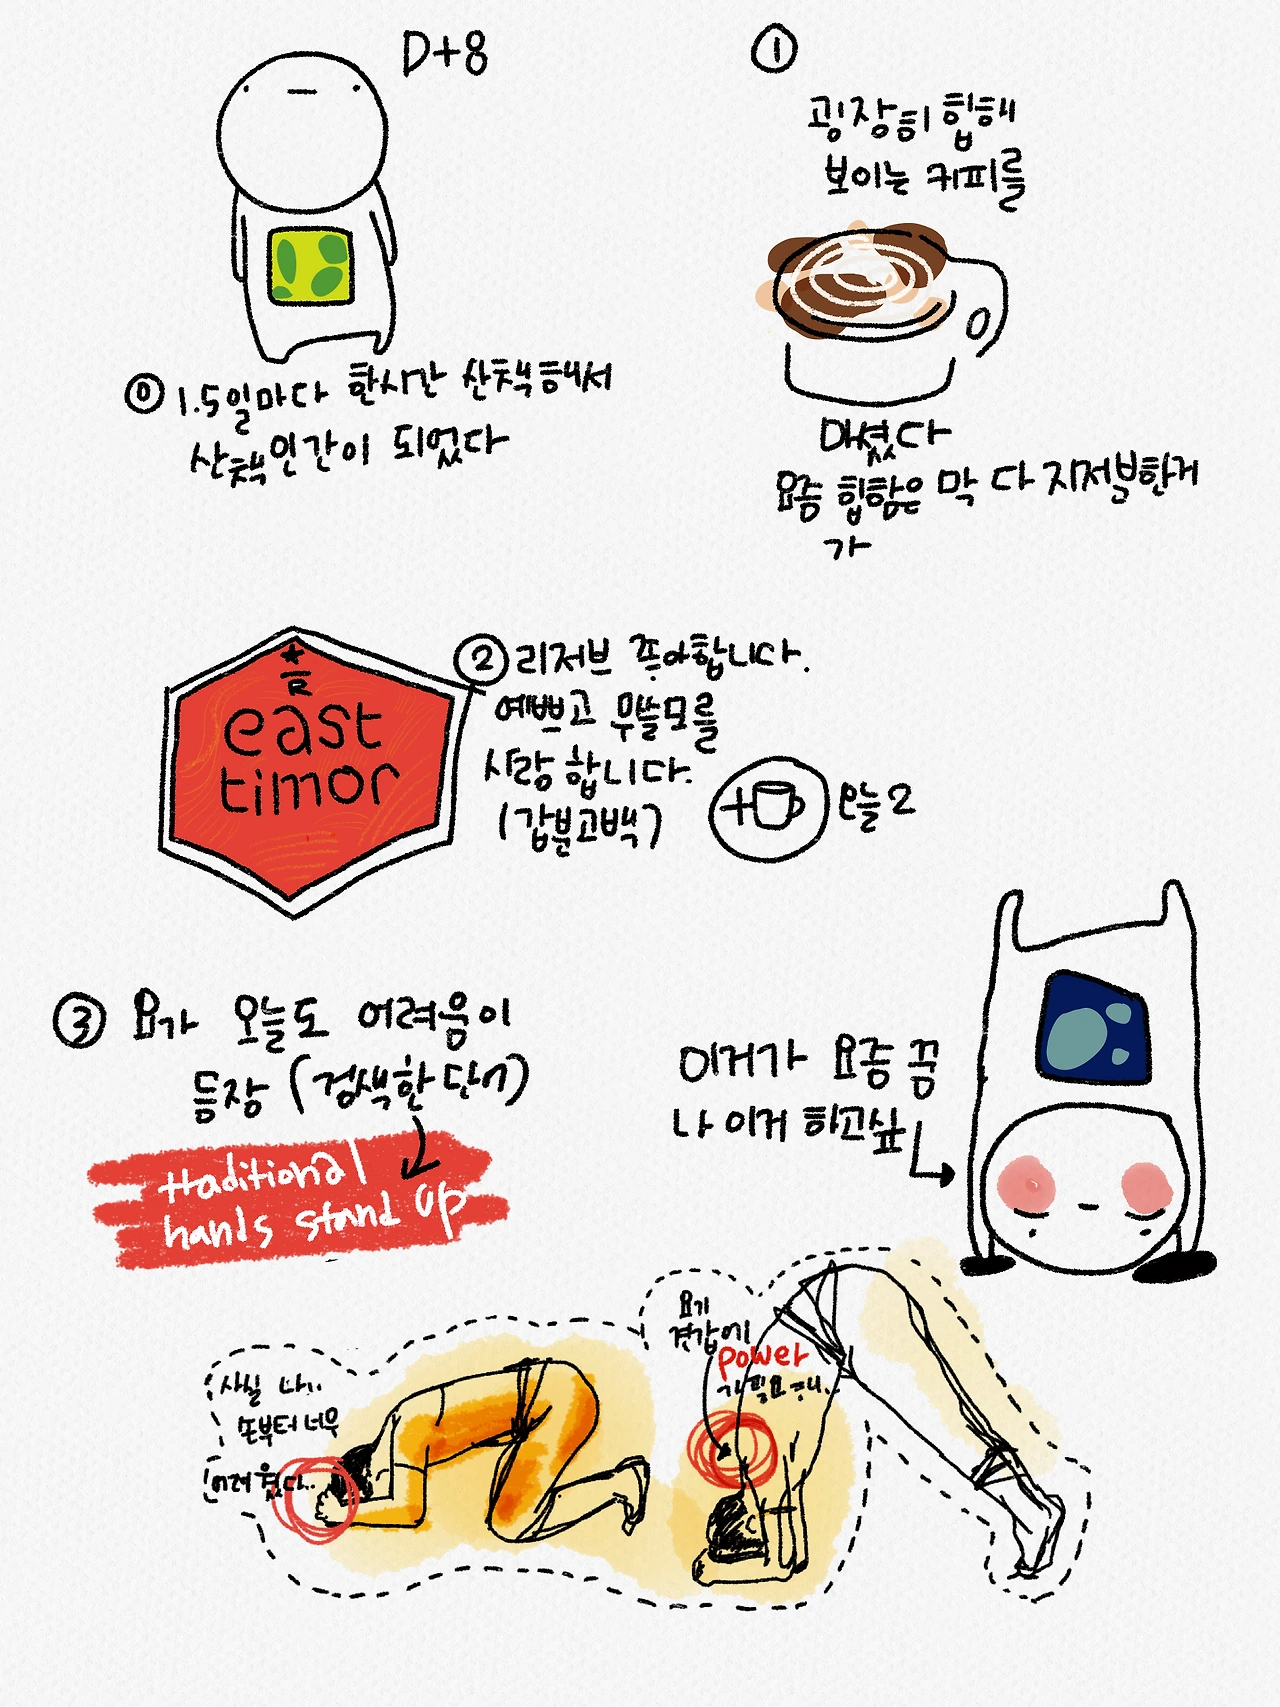 D+8
⓪ 1.5일마다 한시간 산책해서
산책인간이 되었다
①
굉장히 힙해
보이는 커피를
마셨다
요즘 힙함은 막 다 지저분한게
가
★
R
east
timor
② 리저브 좋아합니다.
예쁘고 무쓸모를
사랑합니다.
(갑분고백)
+ 오늘 2
③ 요가 오늘도 어려움이
등장 (검색한 단어)
traditional
hands stand up
이거가 요즘 꿈
나 이거 하고싶
사실 나..
손부터 너무
어려웠다..
요기
견갑에
power
가 필요해..